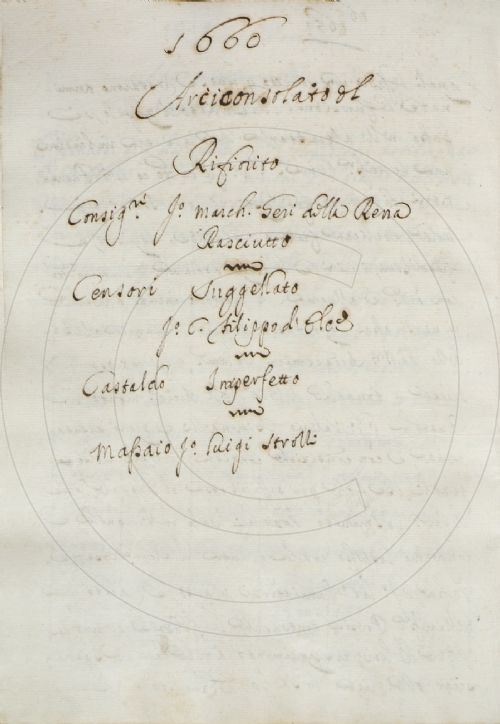 1660
Arciconsolato del
Rifiorito
Consig.ri S.r March. Geri della Rena
Rasciutto
Censori Suggellato
S.r C. Filippo d'Elce
Castaldo Imperfetto
Massaio S.r Luigi Strozzi